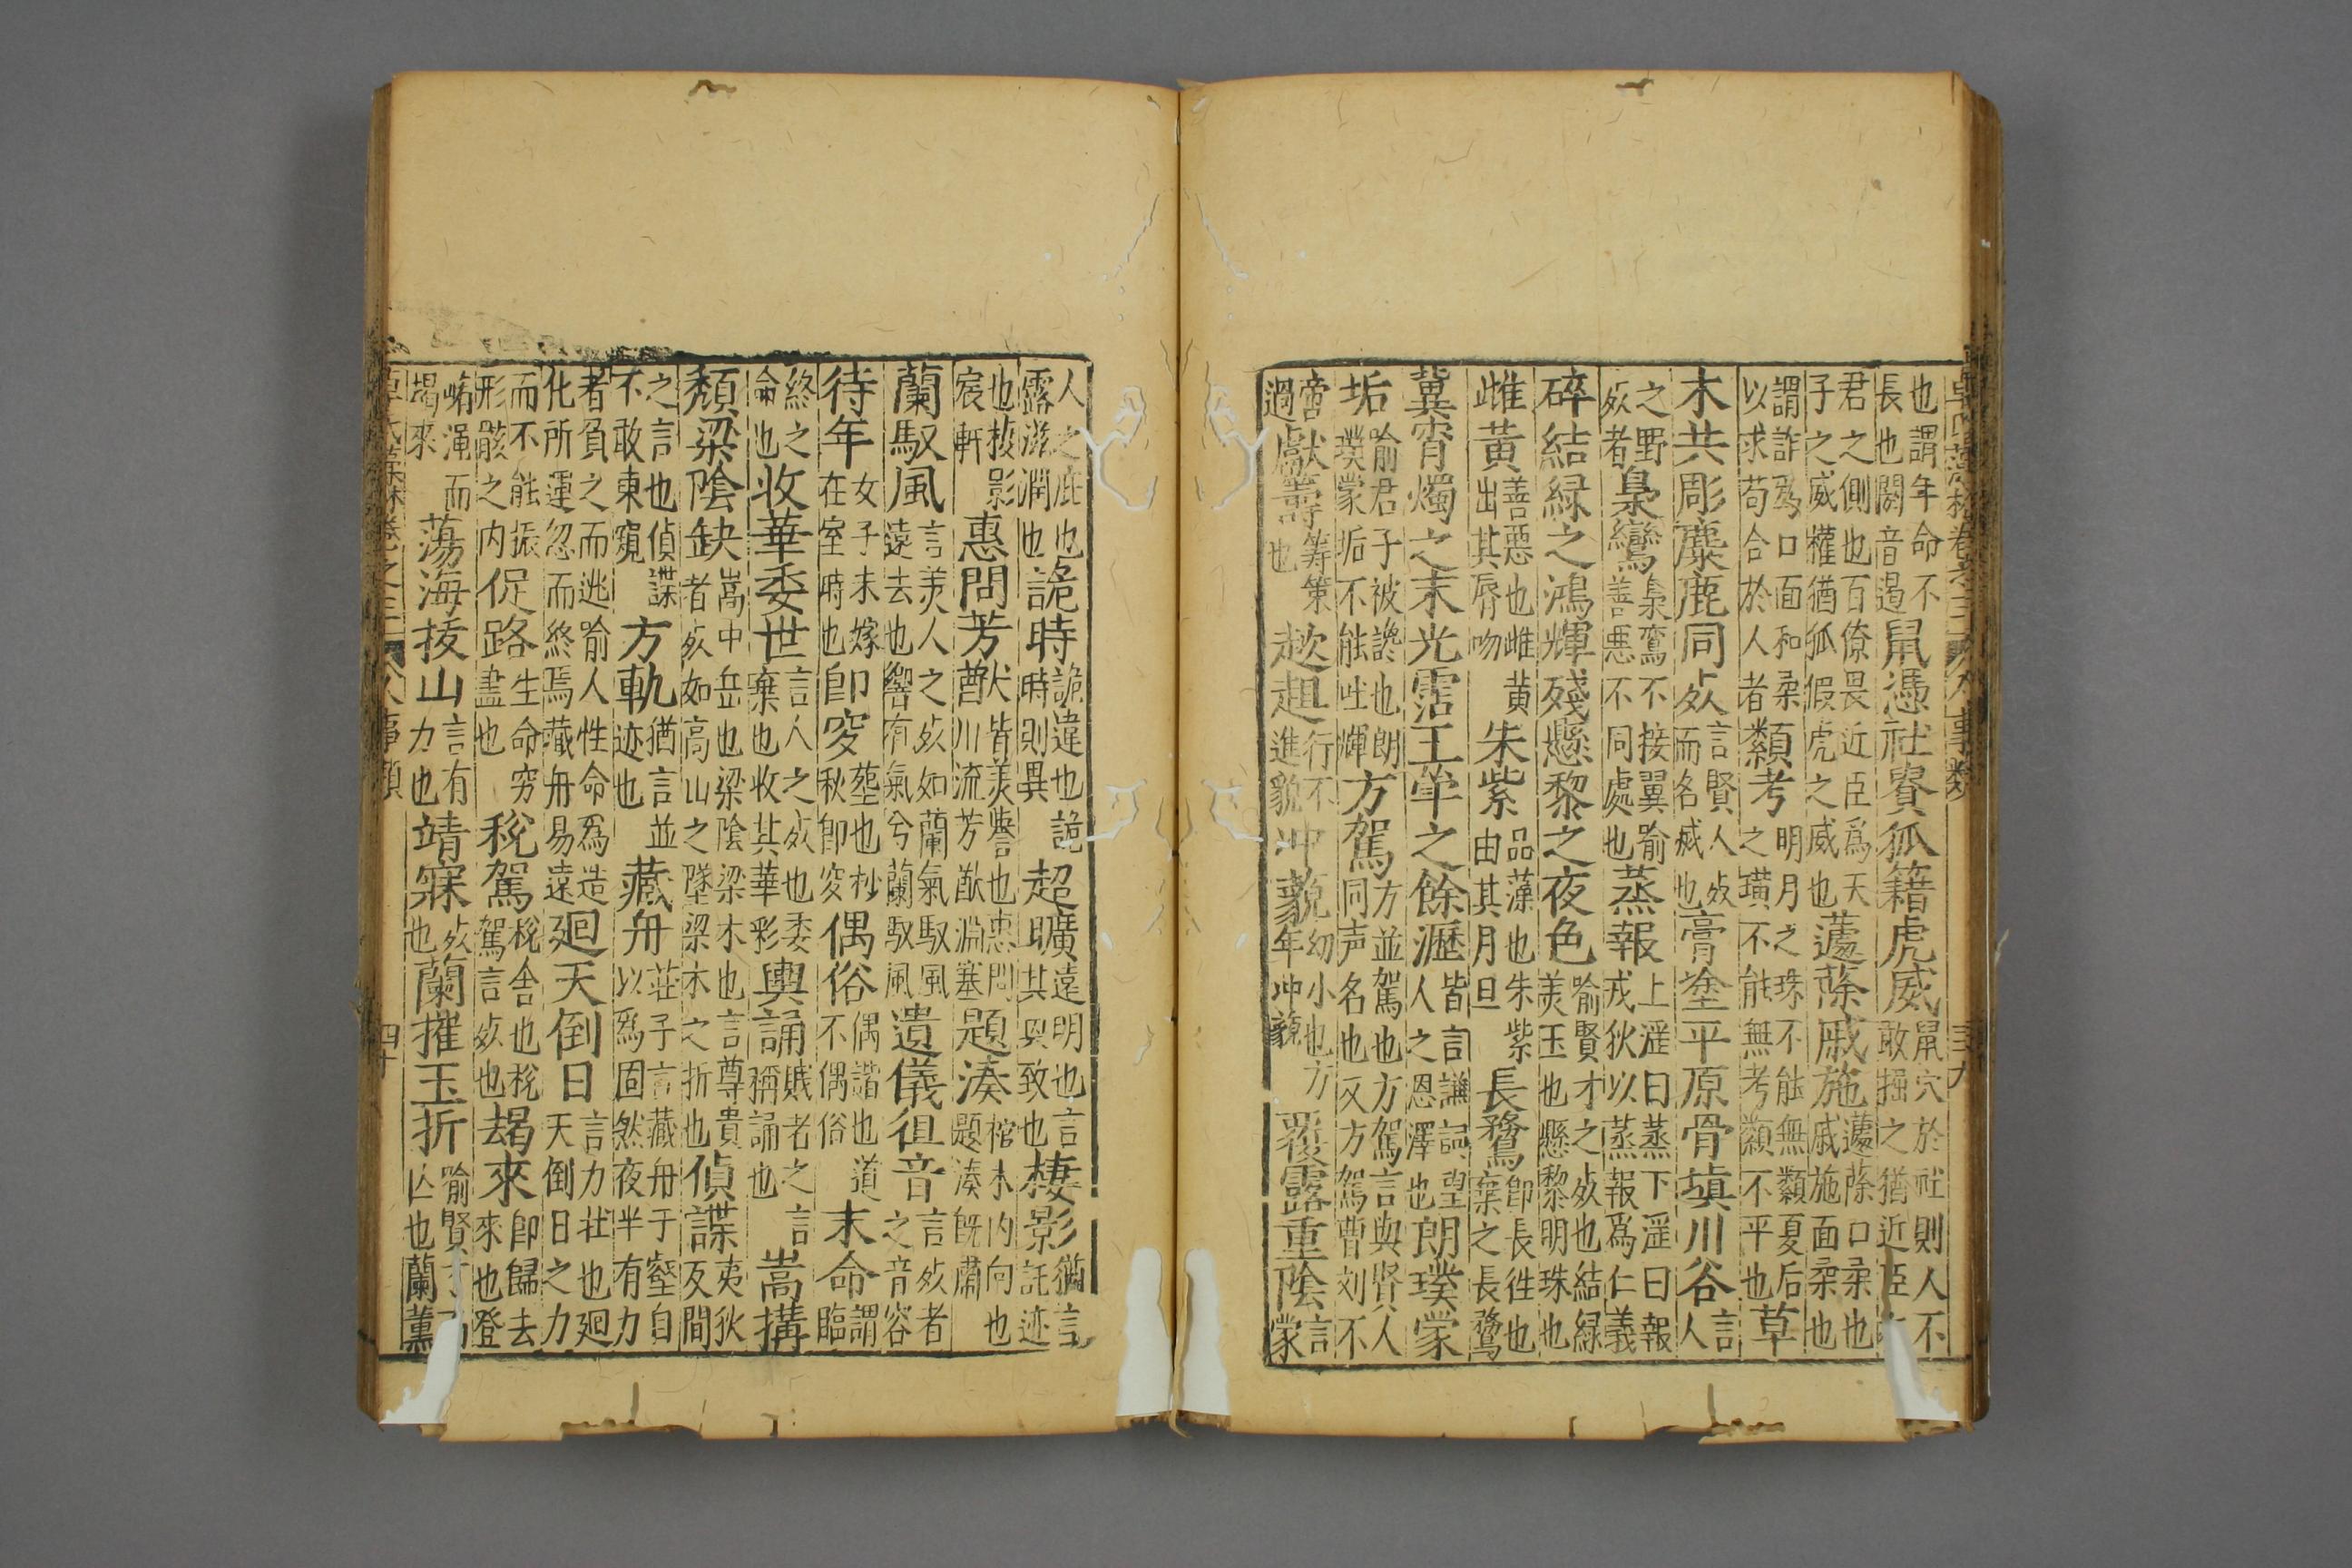 也謂年命不長也閼音遏鼠憑社㝛狐籍虎威鼠穴於社則人不敢掘之猶近臣
君之側也百僚畏近臣爲天子之威權猶狐假虎之威也蘧蒢戚施蘧蒢口柔也戚施面柔也
謂詐爲口面和柔以求苟合於人者纇考明月之珠不能無纇夏后之璜不能無考纇不平也草
木共彫麋鹿同㱠言賢人㱠而名烕也膏塗平原骨塡川谷言人
之野㱠者梟鸞梟鸞不接翼喻善惡不同處也蒸報上滛曰蒸下滛曰報戎狄以蒸報爲仁義
碎結綠之鴻輝殘懸黎之夜色喻賢才之㱠也結綠羙玉也懸黎明珠也
雌黃善惡也雌黃出其脣吻朱紫品藻也朱紫由其月旦長鶩卽長徃也棄之長鶩
冀宵燭之末光霑王華之餘瀝皆言謙謳望人之恩澤也朗璞蒙
垢喻君子被讒也朗璞蒙垢不能吐輝方駕方並駕也方駕言與賢人同声名也又方駕曹刘不
啻過獻籌籌策也趑趄行不進貌冲藐幼小也方年冲藐覆露重陰言蒙
人之庇也露滋潤也詭時詭違也詭時則異超曠遠明也言其興致也棲影猶言託迹
也枝影宸軒惠問芳猷皆羙譽也惠問川流芳猷淵塞題湊棺木內向也題湊旣肅
蘭馭風言羙人之㱠如蘭氣馭風遠去也響有氣兮蘭馭風遺儀徂音言㱠者之音容
待年女子未嫁在室時也卽窆塟也杪秋卽窆偶俗偶諧也道不偶俗末命謂臨
終之命也收華委世言人之㱠也委棄也收其華彩輿誦賤者之言稱誦也嵩搆
頹梁陰缺嵩中岳也梁陰梁木也言尊貴者㱠如高山之墜梁木之折也偵諜夷狄反間
之言也偵諜不敢東窺方軌猶言並迹也藏舟莊子言藏舟于壑自以爲固然夜半有力
者負之而逃喻人性命爲造化所運忽而終焉藏舟易遠廻天倒日言力壯也廻天倒日之力
而不能振形骸之內促路生命穷盡也稅駕稅舍也稅駕言㱠也朅來卽歸去來也登
崤澠而朅來蕩海拔山言有力也靖寐㱠也蘭摧玉折喻賢亾也蘭薰